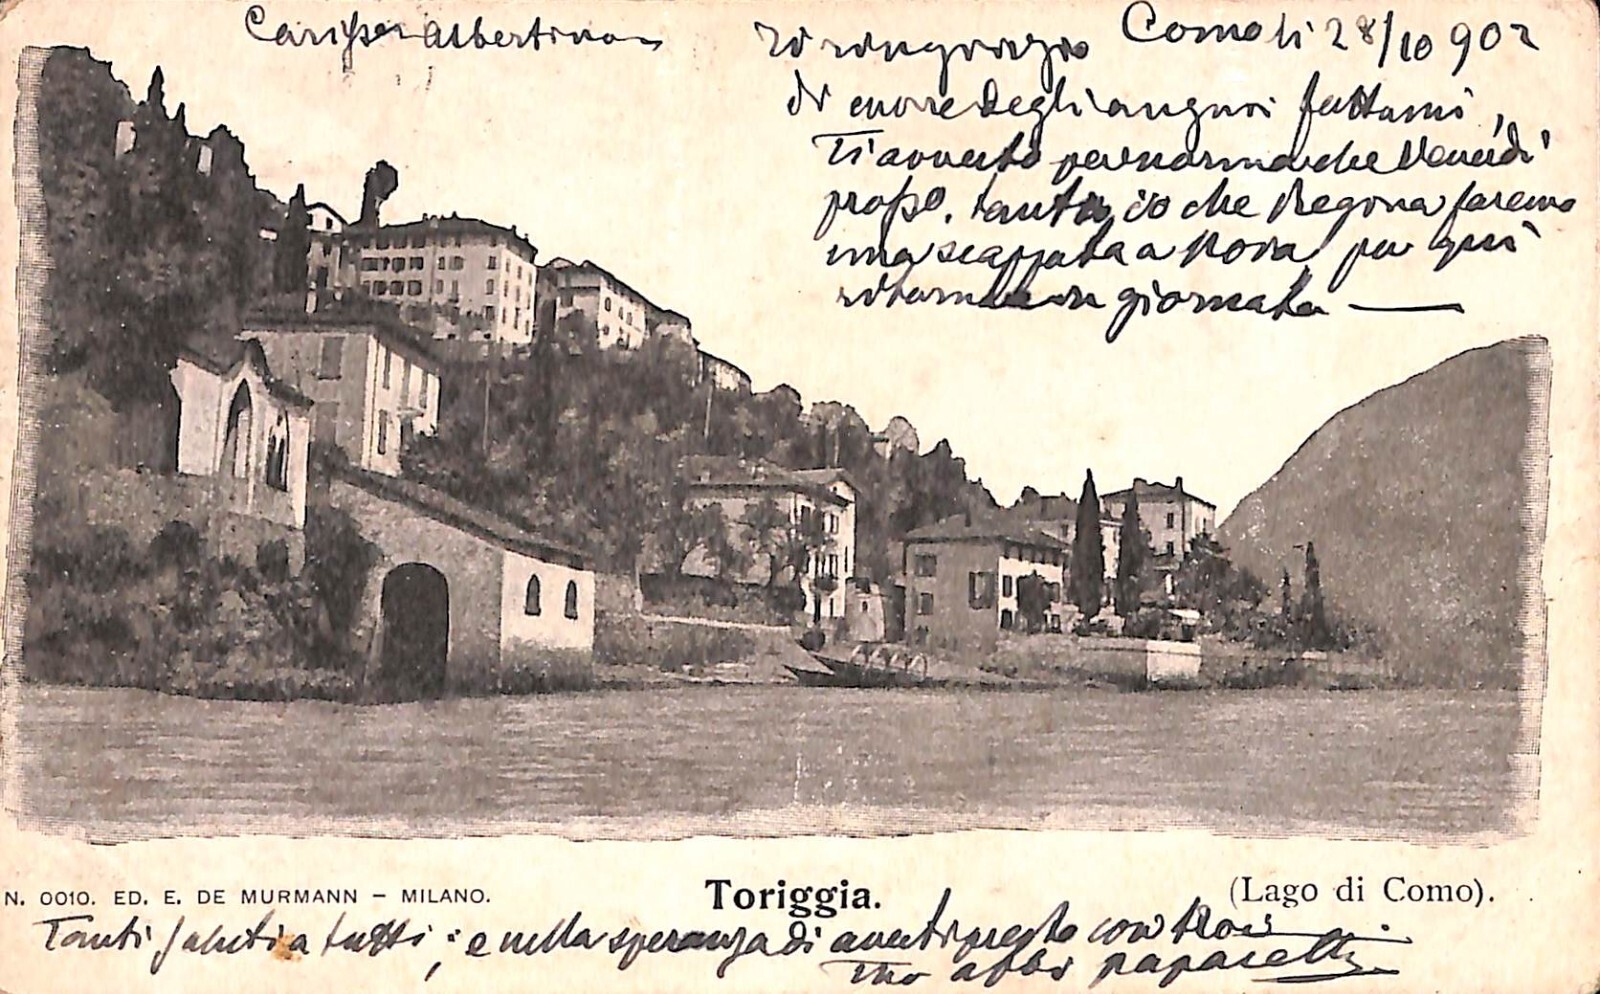 Cariss.a Albertina
Como li 28/10 902
Ti ringrazio
di cuore degli auguri fattami,
Ti avverto per norma che Venerdì
pross. tanto io che Regina faremo
una scappata a per qui
ritornare in giornata
N. 0010. ED. E. DE MURMANN – MILANO.
Toriggia.
(Lago di Como).
Tanti saluti a tutti; e nella speranza di averti presto con noi
tuo